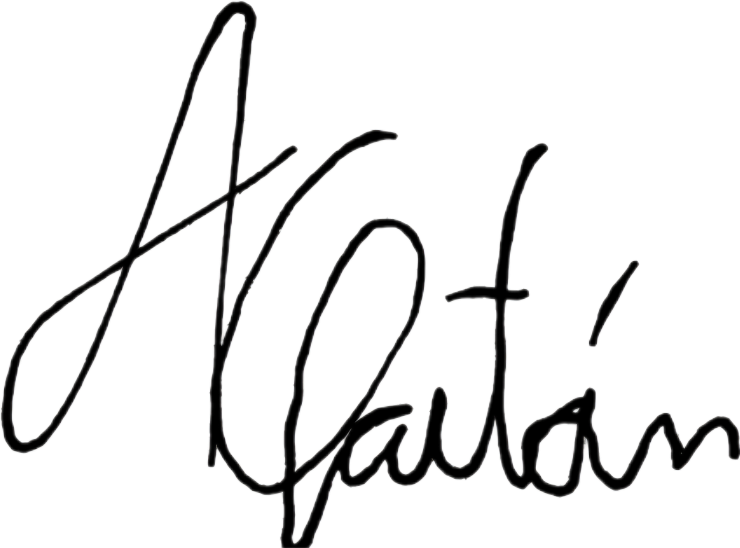 A Gaitán